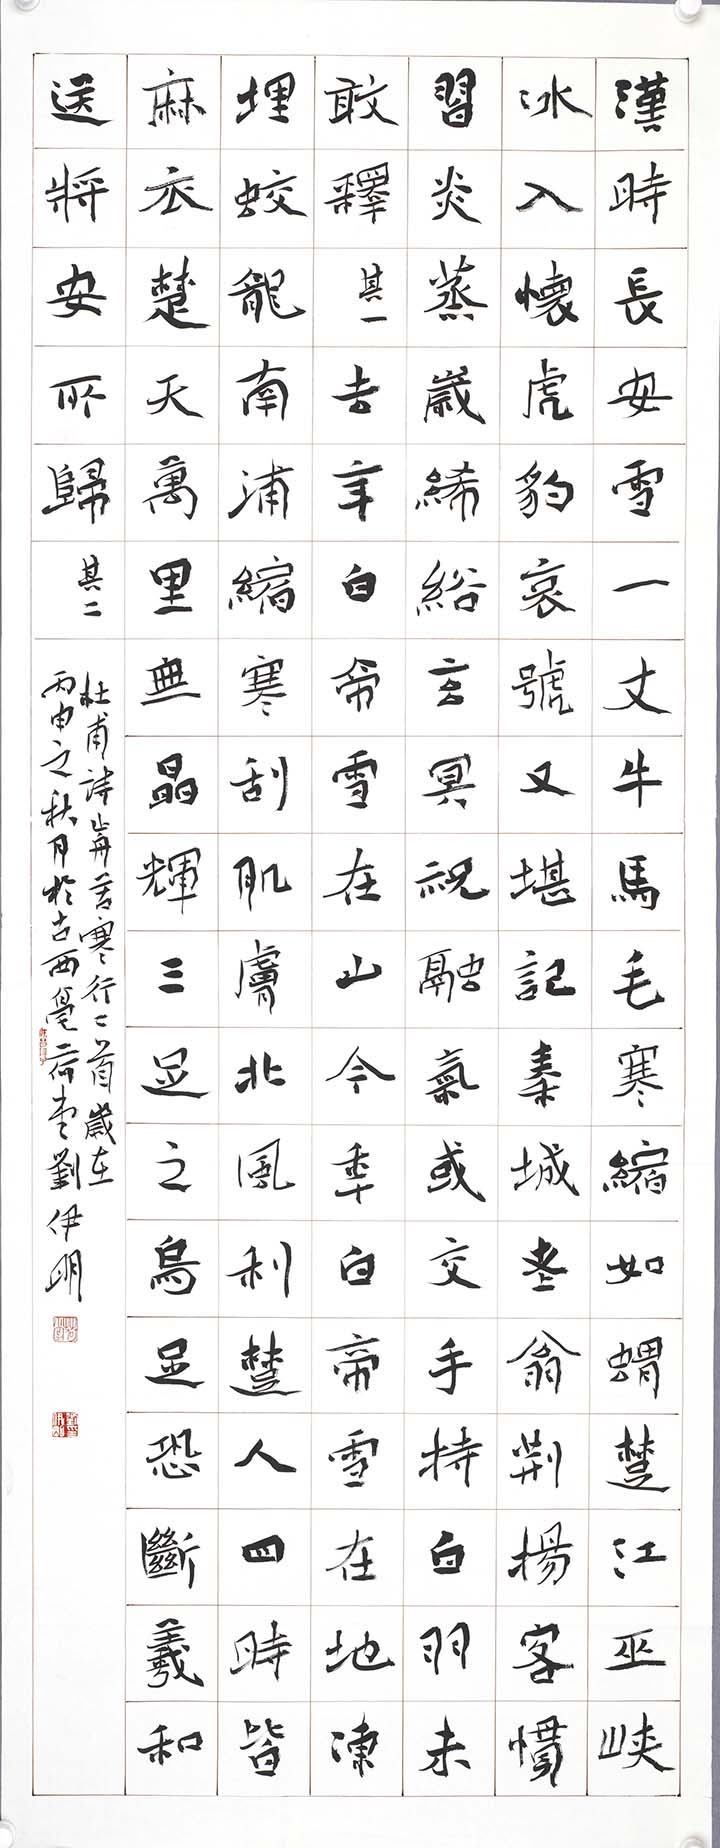 漢時長安雪一丈牛馬毛寒縮如蝟楚江巫峽
冰入懷虎豹哀號又堪記秦城老翁荊揚客慣
習炎蒸歲絺綌玄冥祝融氣或交手持白羽未
敢釋其一去年白帝雪在山今年白帝雪在地凍
埋蛟龍南浦縮寒刮肌膚北風利楚人四時皆
麻衣楚天萬里無晶輝三足之烏足恐斷羲和
送將安所歸其二
杜甫詩歬苦寒行二首歲在
丙申之秋月於古西亳劉伊明